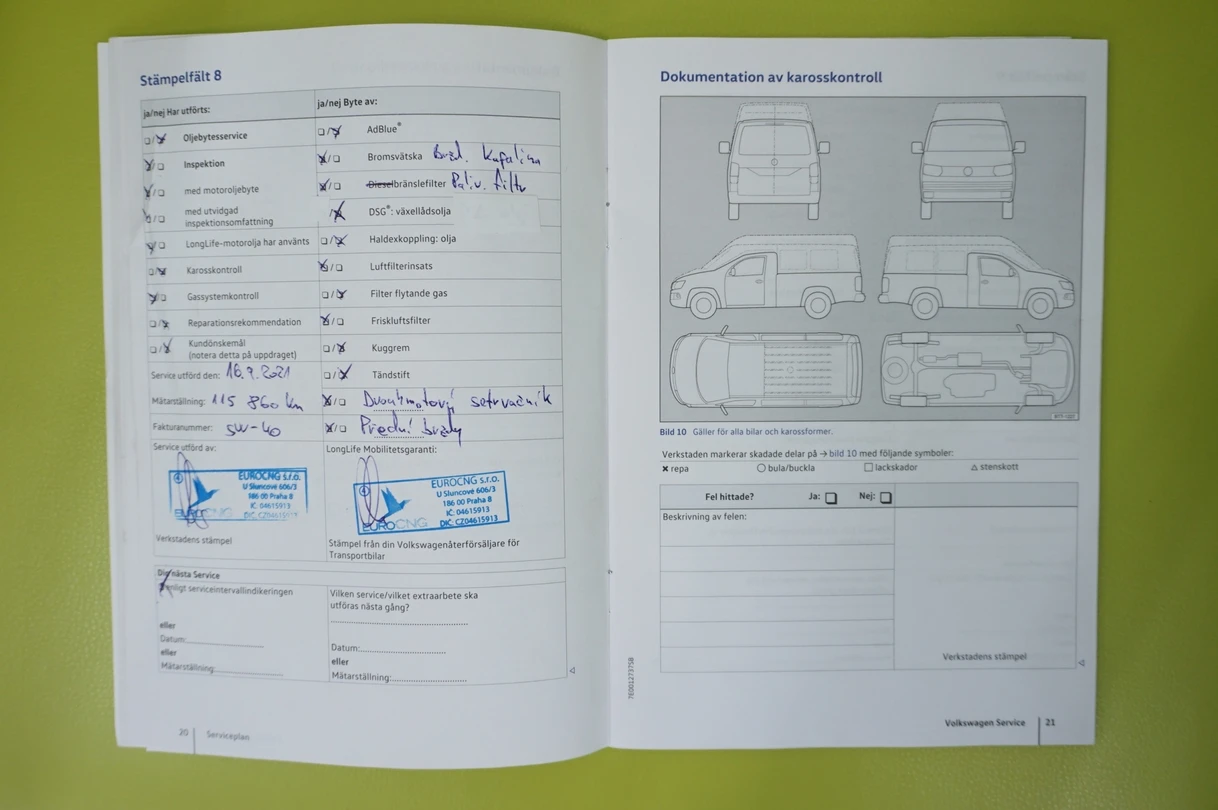 Stämpelfält 8
ja/nej Har utförts:
ja/nej Byte av:
Oljebytesservice
AdBlue®
Inspektion
Bromsvätska Brzd. Kapalina
med motoroljebyte
Dieselbränslefilter Paliv. filtr
med utvidgad
inspektionsomfattning
DSG®: växellådsolja
LongLife-motorolja har använts
Haldexkoppling: olja
Karosskontroll
Luftfilterinsats
Gassystemkontroll
Filter flytande gas
Reparationsrekommendation
Friskluftsfilter
Kundönskemål
(notera detta på uppdraget)
Kuggrem
Service utförd den: 16.9.2021
Tändstift
Mätarställning: 115 860 km
Dvouhmotový setrvačník
Fakturanummer: SW-40
Přední brzdy
Service utförd av:
LongLife Mobilitetsgaranti:
EUROCNG s.r.o.
U Sluncové 606/3
186 00 Praha 8
IČ: 04615913
DIČ: CZ04615913
EUROCNG
EUROCNG s.r.o.
U Sluncové 606/3
186 00 Praha 8
IČ: 04615913
DIČ: CZ04615913
EUROCNG
Verkstadens stämpel
Stämpel från din Volkswagenåterförsäljare för
Transportbilar
Din nästa Service
enligt serviceintervallindikeringen
eller
Datum:
eller
Mätarställning:
Vilken service/vilket extraarbete ska
utföras nästa gång?
Datum:
eller
Mätarställning:
20 Serviceplan
Dokumentation av karosskontroll
Bild 10 Gäller för alla bilar och karossformer.
Verkstaden markerar skadade delar på → bild 10 med följande symboler:
× repa ○ bula/buckla □ lackskador △ stenskott
Fel hittade? Ja: Nej:
Beskrivning av felen:
Verkstadens stämpel
7E0012737SB
Volkswagen Service 21